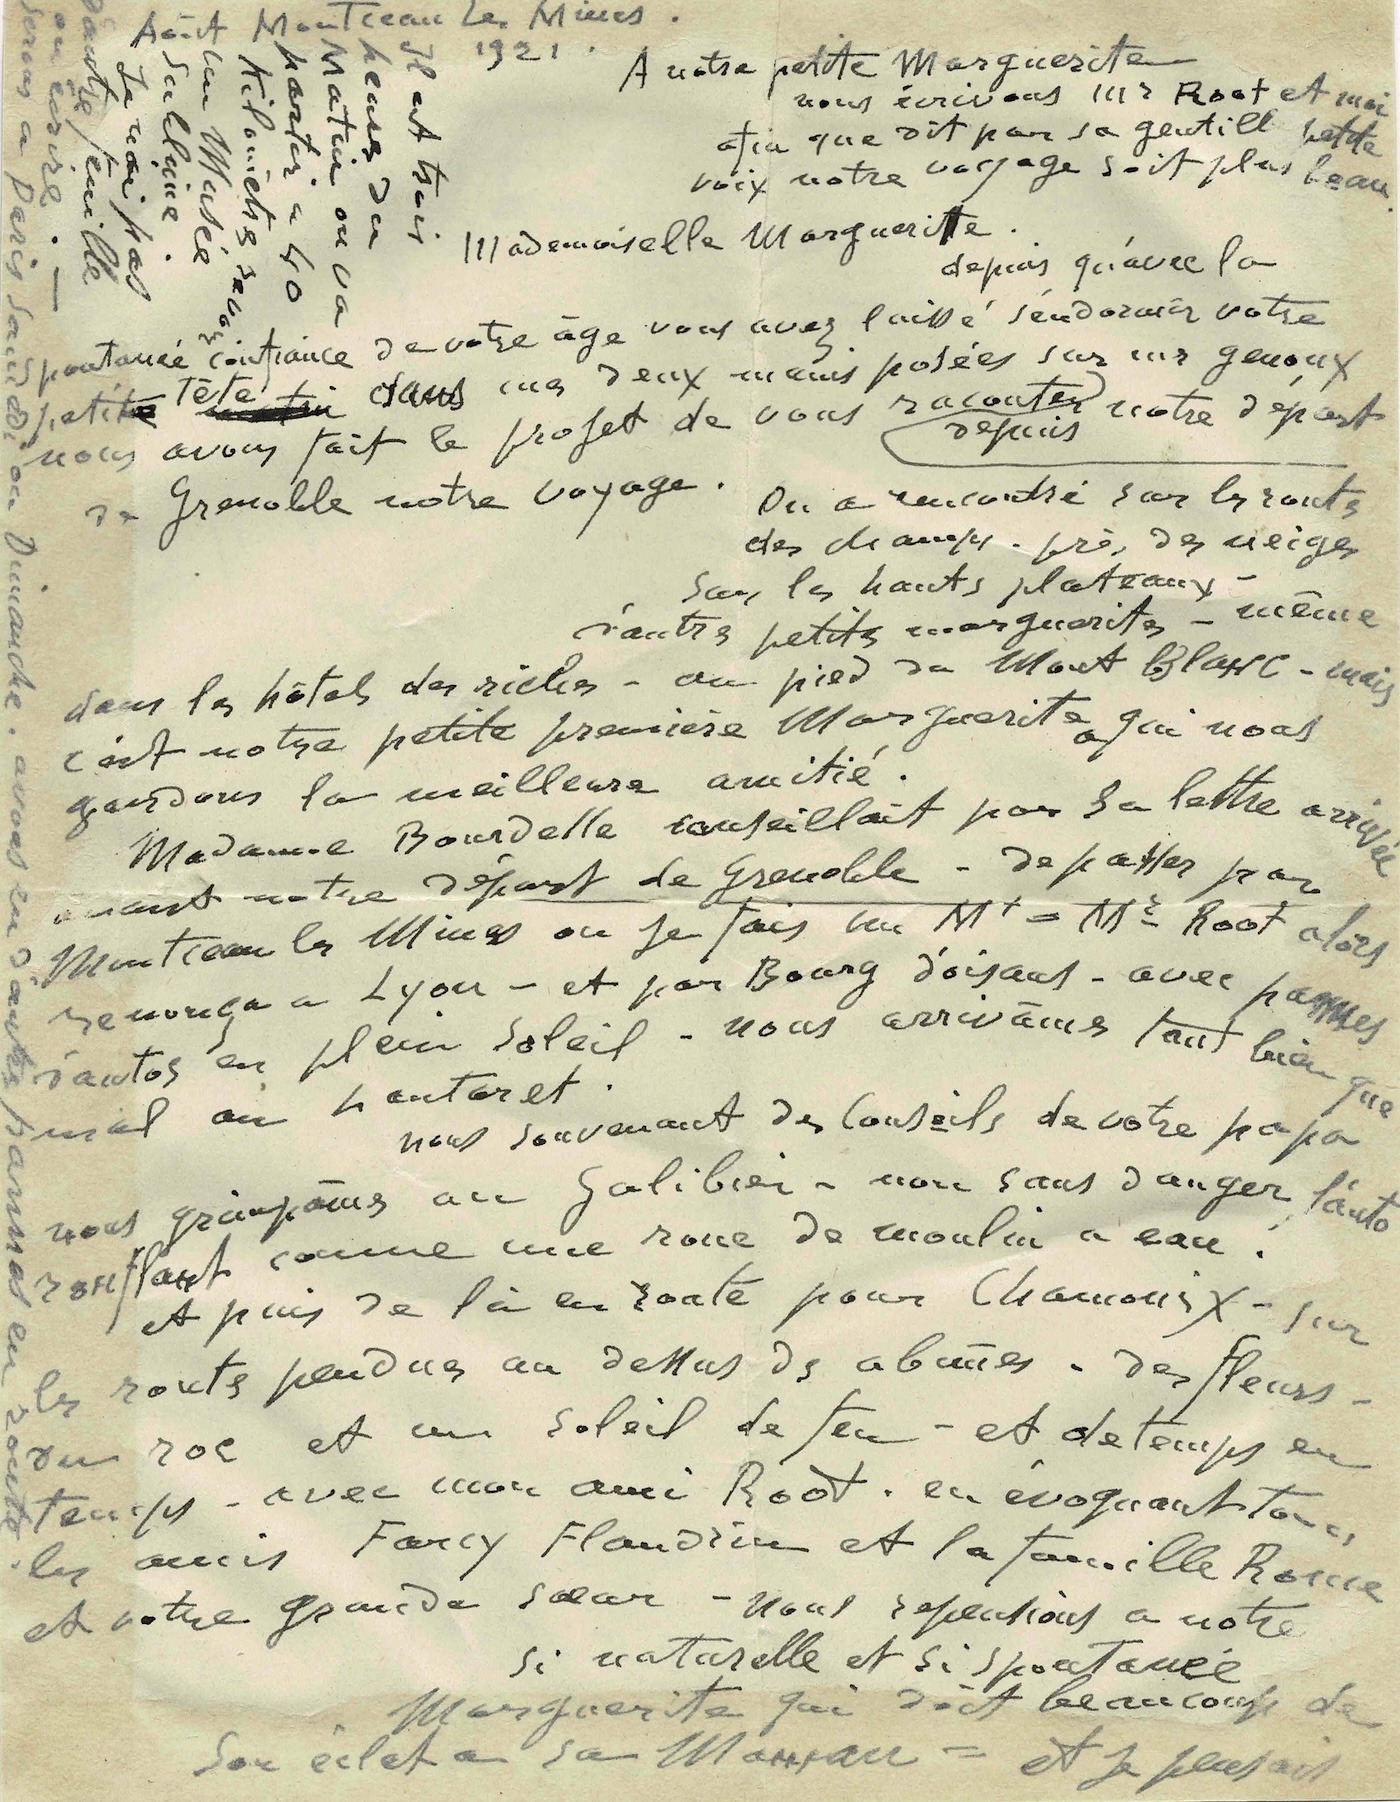 Août Montceau les Mines.
1921.
A notre petite Marguerite
nous écrivons Mr Root et moi
afin que dit par sa gentill petite
voix notre voyage soit plus beau
Mademoiselle Marguerite.
depuis qu'avec la
spontanée confiance de votre âge vous avez laissé s'endormir votre
petite tête dans mes deux mains posées sur mes genoux
nous avons fait le projet de vous raconter notre départ
depuis
de Grenoble notre voyage.
On a rencontré sur les routs
des champs. près des neiges
sur les hauts plateaux -
d'autrs petits marguerites - même
dans les hôtels des riches - au pied du Mont Blanc - mais
c'est notre petite première Marguerite a qui nous
gardons la meilleure amitié.
Madame Bourdelle conseillait par sa lettre arrivée
avant notre départ de Grenoble - de passer par
Montceau les Mines ou je fais un Mt = Mr Root alors
renonça a Lyon - et par Bourg d'oisans - avec pannes
d'autos en plein soleil - nous arrivâmes tant bien que
mal au pautaret.
nous souvenant des Conseils de votre papa
nous grimpâmes au Galibier - non sans danger l'auto
ronflant comme une roue de moulin a eau.
et puis de là en route pour Chamonix - sur
les routs pendues au dessus ds abîmes - des fleurs -
du roc et un soleil de feu - et de temps en
temps - avec mon ami Root. en évoquant tous
les amis Farcy Flandrin et la famille Rome
et votre grande sœur - nous repensions a notre
si naturelle et si spontanée
Marguerite qui doit beaucoup de
son éclat a sa Maman = et je pensais
Il est trois
heures du
Matin on va
partir a 40
Kilomètrs
un Musée
sublime.
Je n'ai pas
d'autre feuille
ou écrire. —
serons a Paris Samedi ou Dimanche. avons eu d'autrs pannes en route.